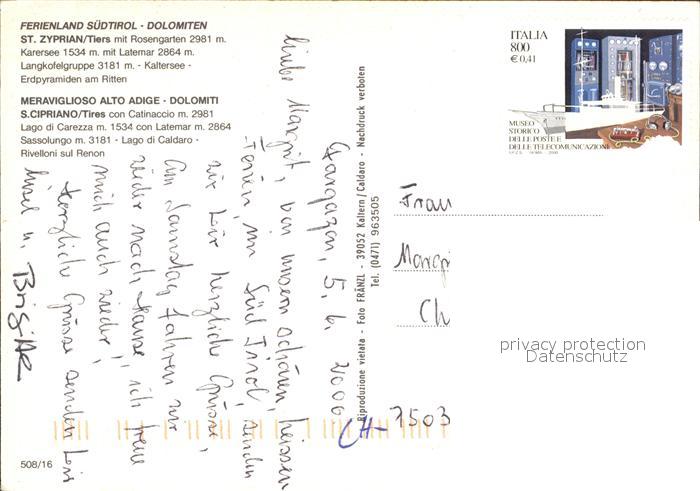 FERIENLAND SÜDTIROL - DOLOMITEN
ST. ZYPRIAN/Tiers mit Rosengarten 2981 m.
Karersee 1534 m. mit Latemar 2864 m.
Langkofelgruppe 3181 m. - Kaltersee -
Erdpyramiden am Ritten
MERAVIGLIOSO ALTO ADIGE - DOLOMITI
S.CIPRIANO/Tires con Catinaccio m. 2981
Lago di Carezza m. 1534 con Latemar m. 2864
Sassolungo m. 3181 - Lago di Caldaro -
Rivelloni sul Renon
Gargazon, 5. 6. 2000
Liebe Margrit, von unsern schönen, heissen
Ferien im Süd Tirol, senden
wir Dir herzliche Grüsse,
am Samstag fahren wir
wieder nach Hause, ich freue
mich auch wieder!
Herzliche Grüsse senden Dir
u. Brigitte
Riproduzione vietata - Foto FRÄNZL - 39052 Kaltern/Caldaro - Nachdruck verboten
Tel. (0471) 963505
ITALIA
800
€ 0,41
MUSEO
STORICO
DELLE POSTE E
DELLE TELECOMUNICAZIONI
Frau
Margr
Ch
CH-7503
privacy protection
Datenschutz
508/16